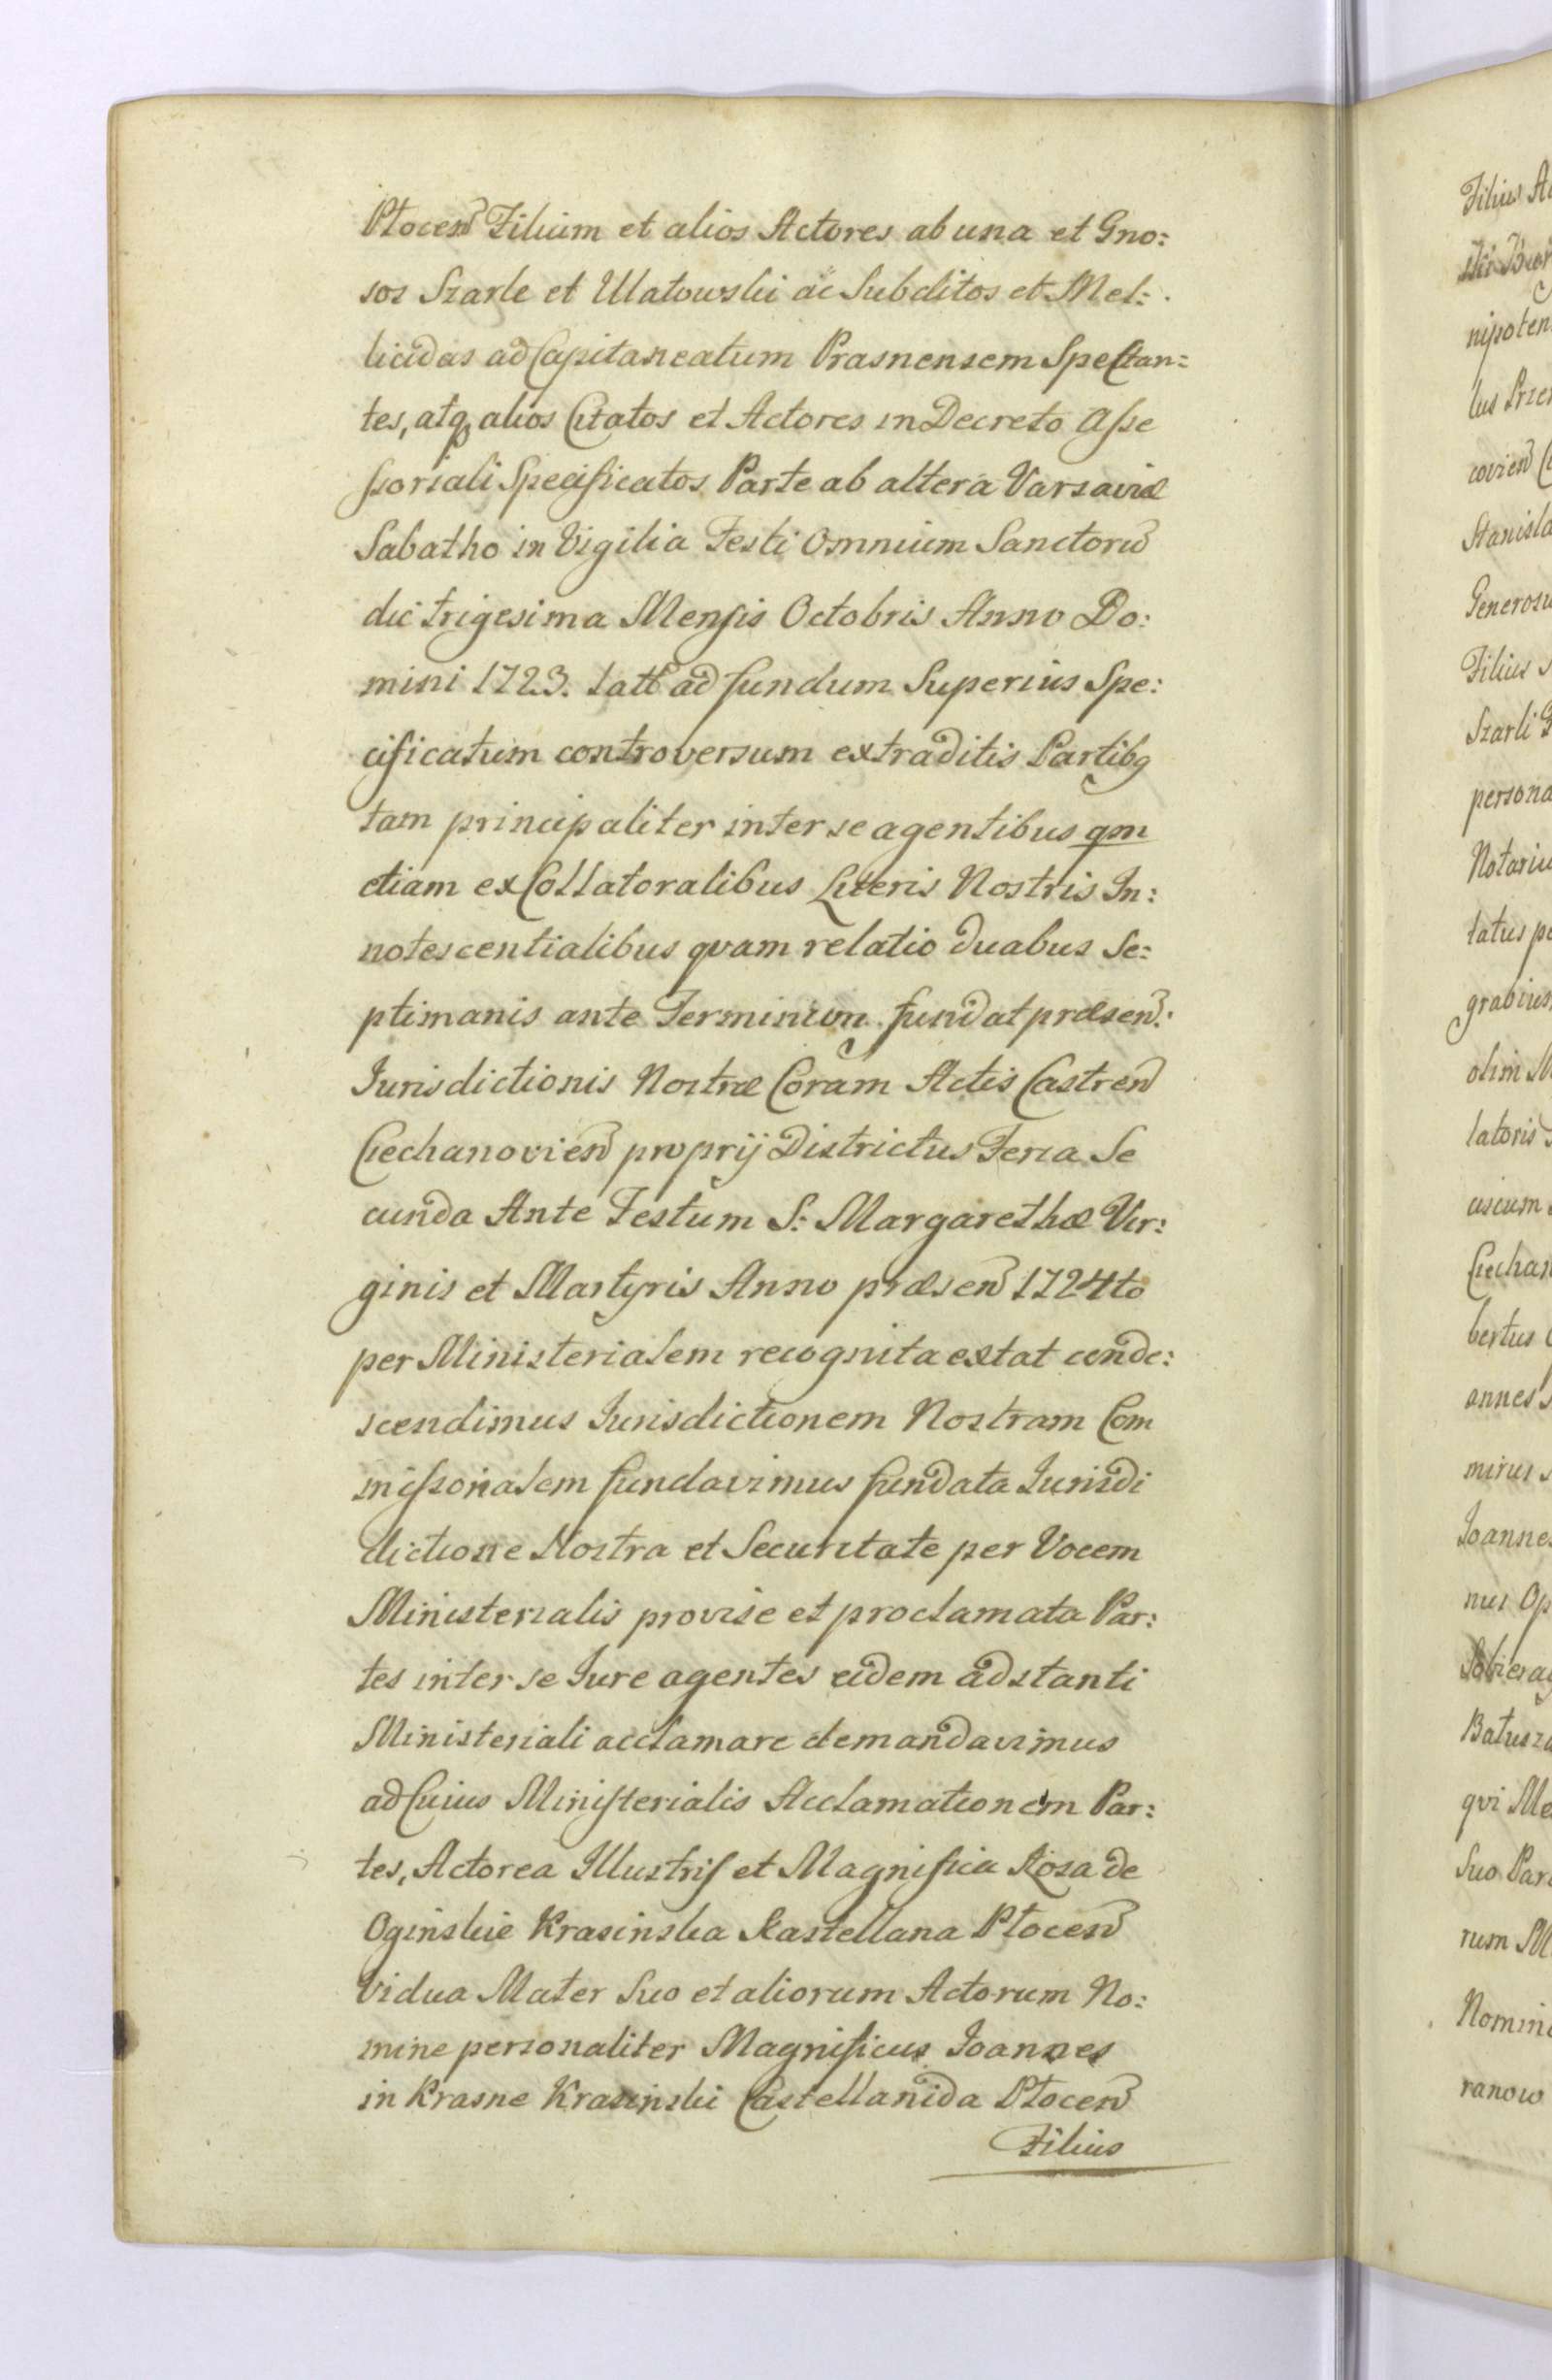 Plocen Filium et alios Actores ab una et Gno:
sos Szarle et Ulatowski ac Subditos et Mel:
licidas ad Capitaneatum Prasnensem Spectan=
tes, atq alios Citatos et Actores in Decreto Asse
ssoriali Specificatos Parte ab altera Varsaviæ
Sabatho in Vigilia Festi Omnium Sanctoru
die trigesima Mensis Octobris Anno Do:
mini 1723. latt ad fundum Superius Spe:
cificatum controversum extraditis Partibq
tam principaliter inter se agentibus qm
etiam ex Collatoralibus Literis Nostris In:
notescentialibus qvam relatio duabus Se=
ptimanis ante Terminum fundat præsen:
Jurisdictionis Nostræ Coram Actis Castren
Ciechanovien proprij Districtus Feria Se
cunda Ante Festum S: Margarethæ Vir:
ginis et Martyris Anno præsen 1724to
per Ministerialem recognita extat conde:
scendimus Jurisdictionem Nostram Com
missorialem fundavimus fundata Jurisdi
dictione Nostra et Securitate per Vocem
Ministerialis provise et proclamata Par:
tes inter se Jure agentes eidem adstanti
Ministeriali acclamare demandavimus
ad Cuius Ministerialis Acclamationem Par:
tes, Actorea Illustris et Magnifica Roza de
Oginskie Krasinska Kastellana Plocen
Vidua Mater Suo et aliorum Actorum No:
mine personaliter Magnificus Joannes
in Krasne Krasinski Castellanida Plocen
Filius
Filius
nipoten
covien
Stanisla
Generosu
Filius
Szarli
persona
Notariu
tatus
olim
latoris
Ciechan
bertus
annes
Joannes
nus
qvi
Suo
rum
Nomine
ranow